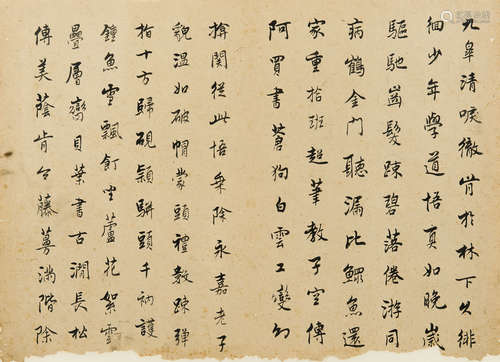 九皋清唳徹肯於林下久徘
徊少年學道悟真如晚歲
驅馳齒髮踈碧落倦游同
病鶴金門聽漏比鰥魚還
家重拾班超筆教子空傳
阿買書蒼狗白雲工變幻
掩関從此悟乘除永嘉老子
貌溫如破帽蒙頭禮數踈彈
指十方歸硯穎駢頭千衲護
鐘魚雪飄飣坐蘆花絮雲
疊層巒貝葉書古澗長松
傳美蔭肯令藤蔓滿階除